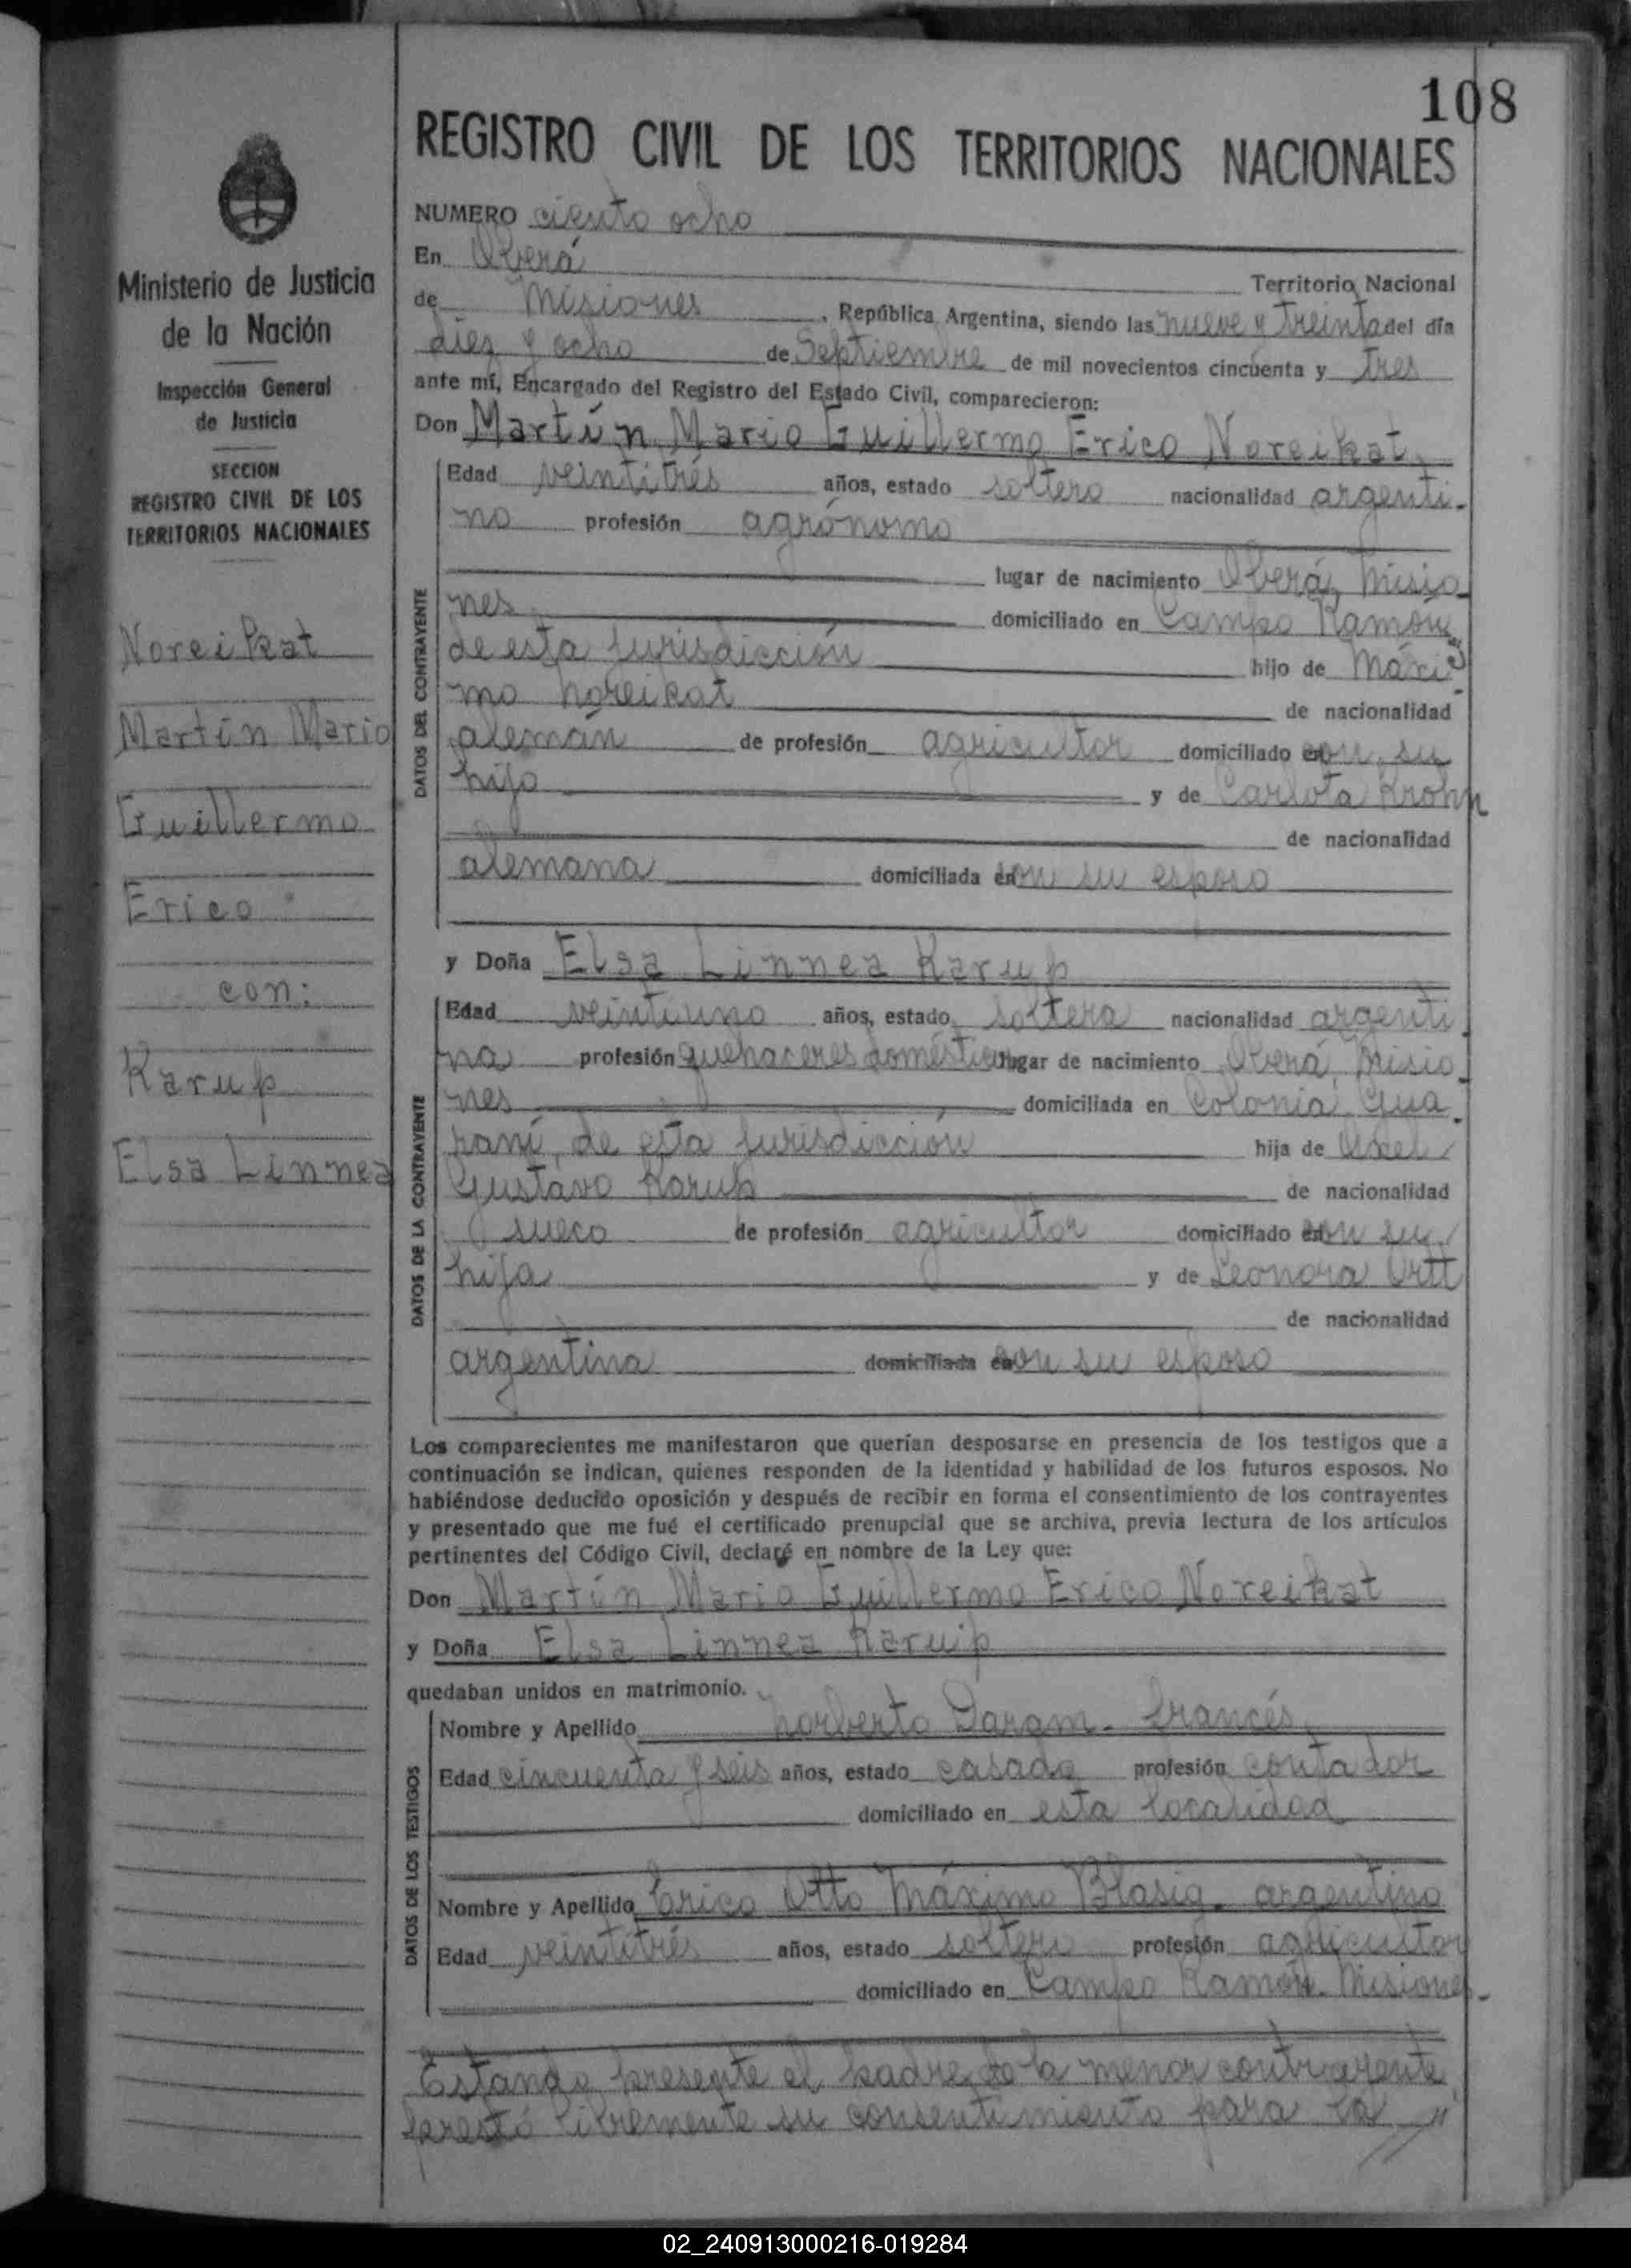 108
REGISTRO CIVIL DE LOS TERRITORIOS NACIONALES
Ministerio de Justicia
de la Nación
Inspección General
de Justicia
SECCION
REGISTRO CIVIL DE LOS
TERRITORIOS NACIONALES
Noreikat
Martín Mario
Guillermo
Erico
con:
Karup
Elsa Linnea
NUMERO ciento ocho
En Oberá
Territorio Nacional
de Misiones, República Argentina, siendo las nueve y treinta del día
diez y ocho de Septiembre de mil novecientos cincuenta y tres
ante mí, Encargado del Registro del Estado Civil, comparecieron:
Don Martín Mario Guillermo Erico Noreikat,
DATOS DEL CONTRAYENTE
Edad veintitrés años, estado soltero nacionalidad argenti-
no profesión agrónomo
lugar de nacimiento Oberá, Misio-
nes, domiciliado en Campo Ramón,
de esta jurisdicción hijo de Máxi-
mo Noreikat de nacionalidad
alemán de profesión agricultor domiciliado con su
hijo y de Carlota Krohn
de nacionalidad
alemana domiciliada con su esposo
y Doña Elsa Linnea Karup
DATOS DE LA CONTRAYENTE
Edad veintiuno años, estado soltera nacionalidad argenti-
na profesión quehaceres domésticos lugar de nacimiento Oberá, Misio-
nes, domiciliada en Colonia Gua-
raní, de esta jurisdicción hija de Axel
Gustavo Karup de nacionalidad
sueco de profesión agricultor domiciliado con su
hija y de Leonora Ortt
de nacionalidad
argentina domiciliada con su esposo
Los comparecientes me manifestaron que querían desposarse en presencia de los testigos que a
continuación se indican, quienes responden de la identidad y habilidad de los futuros esposos. No
habiéndose deducido oposición y después de recibir en forma el consentimiento de los contrayentes
y presentado que me fué el certificado prenupcial que se archiva, previa lectura de los artículos
pertinentes del Código Civil, declaré en nombre de la Ley que:
Don Martín Mario Guillermo Erico Noreikat
y Doña Elsa Linnea Karup
quedaban unidos en matrimonio.
DATOS DE LOS TESTIGOS
Nombre y Apellido Norberto Daram - francés,
Edad cincuenta y seis años, estado casado profesión contador
domiciliado en esta localidad
Nombre y Apellido Erico Otto Máximo Blasig - argentino
Edad veintitrés años, estado soltero profesión agricultor
domiciliado en Campo Ramón - Misiones-
Estando presente el padre de la menor contrayente,
prestó libremente su consentimiento para la //
02_240913000216-019284